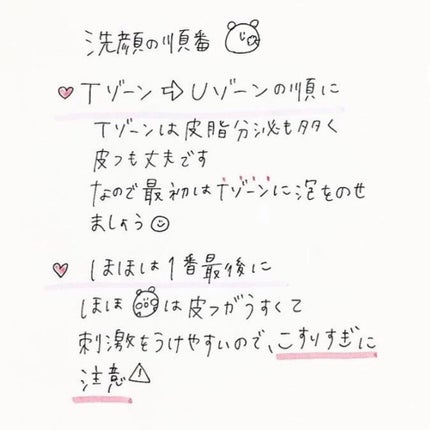 洗顔の順番
Tゾーン⇨Uゾーンの順に
Tゾーンは皮脂分泌も多く
皮フも丈夫です
なので最初はTゾーンに泡をのせ
ましょう☺
ほほは1番最後に
ほほは皮フがうすくて
刺激をうけやすいので、こすりすぎに
注意⚠